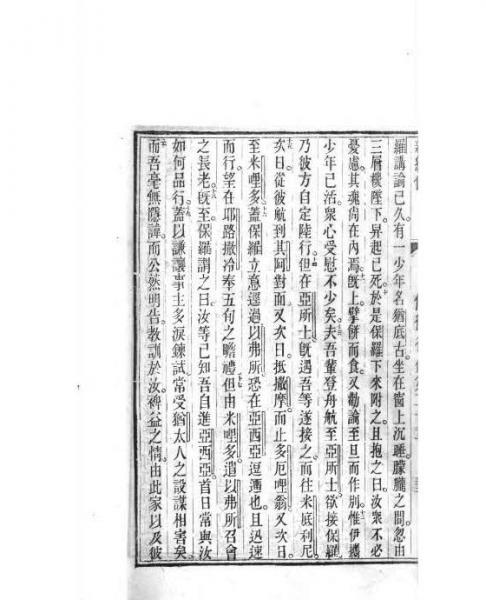 羅講論已久有一少年名猶底古坐在窗上沉睡朦朧之間忽由
三層樓墜下昇起已死於是保羅下來附之且抱之曰汝衆不必
憂慮其魂尚在內焉旣上擘餅而食又勸論至旦而作別惟伊攜
少年已活衆心受慰不少矣夫吾輩登舟航至亞所士欲接保羅
乃彼方自定陸行但在亞所士旣遇吾等遂接之而往米底利尼
次日從彼航到其阿對面又次日抵撒摩而止多厄哩翁又次日
至米哩多蓋保羅立意逕過以弗所恐在亞西亞逗遛也且迅速
而行望在耶路撒冷奉五旬之瞻禮但由米哩多遣以弗所召會
之長老旣至保羅謂之曰汝等已知吾自進亞西亞首日常與汝
如何品行蓋以謙讓事主多淚鍊試常受猶太人之設謀相害矣
而吾毫無隱諱而公然明告教訓於汝裨益之情由此家以及彼